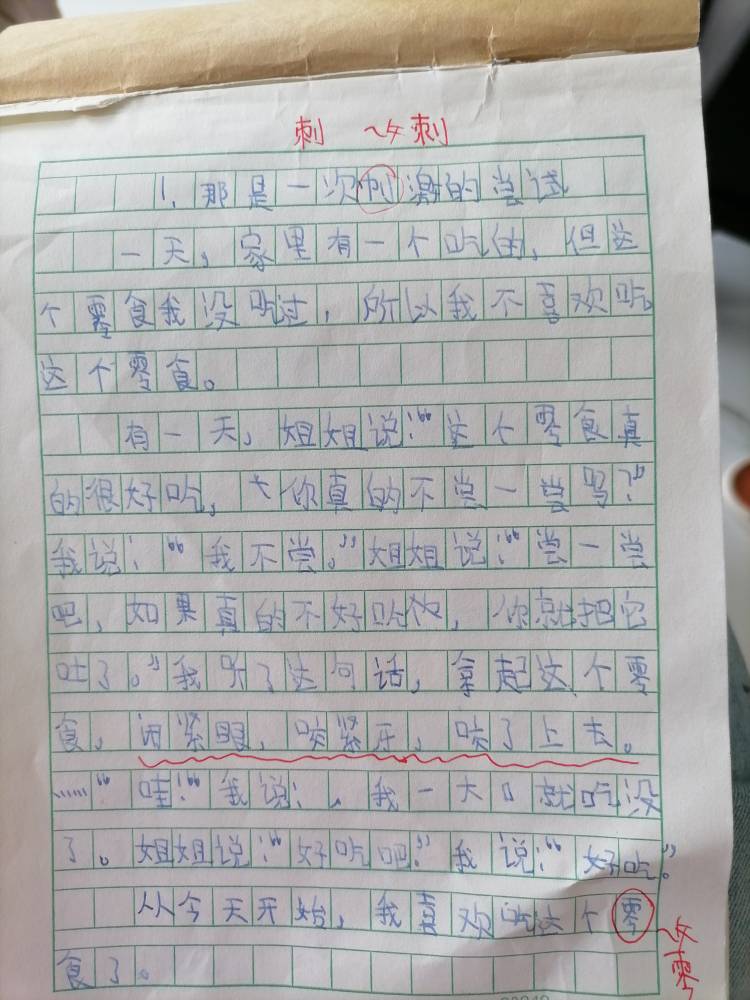 刺 刺
1.那是一次刺激的尝试
一天,家里有一个吃的,但这
个零食我没吃过,所以我不喜欢吃
这个零食。
有一天,姐姐说:“这个零食真
的很好吃,你真的不尝一尝吗?”
我说:“我不尝。”姐姐说:“尝一尝
吧,如果真的不好吃,你就把它
吐了。”我听了这句话,拿起这个零
食,闭紧眼,咬紧牙,咬了上去。
……“哇!“我说:,我一大口就吃没
了。姐姐说:“好吃吧!”我说:“好吃。”
从今天开始,我喜欢吃这个零
零
食了。